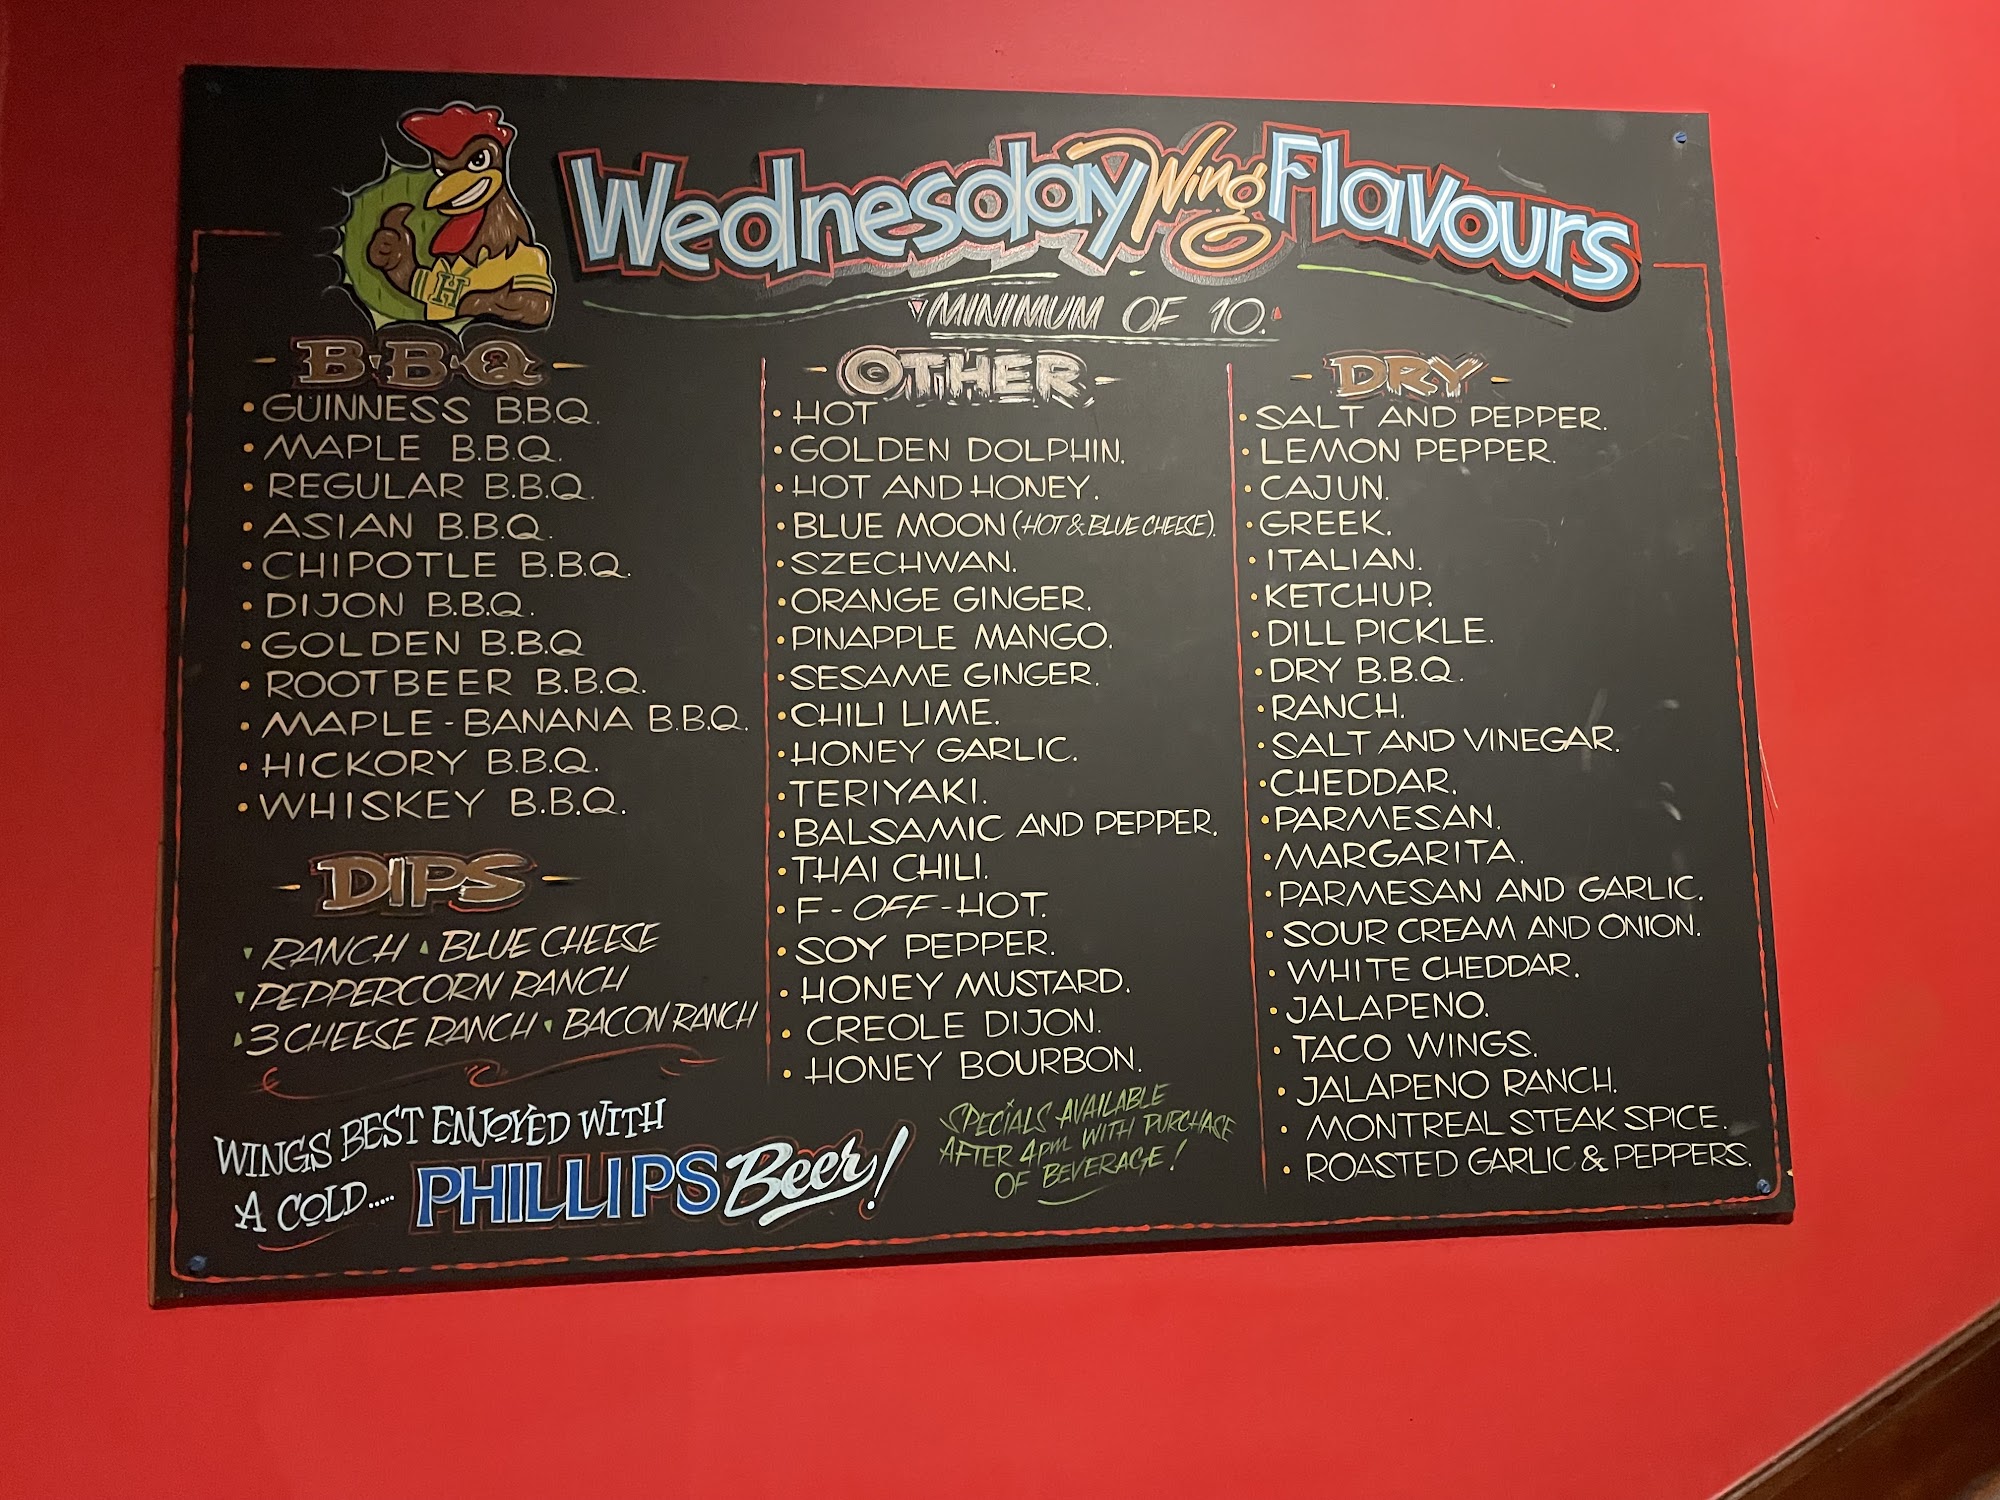 Wednesday Wing Flavours
MINIMUM OF 10.
H
B·B·Q
• GUINNESS B.B.Q.
• MAPLE B.B.Q.
• REGULAR B.B.Q.
• ASIAN B.B.Q.
• CHIPOTLE B.B.Q.
• DIJON B.B.Q.
• GOLDEN B.B.Q
• ROOTBEER B.B.Q.
• MAPLE-BANANA B.B.Q.
• HICKORY B.B.Q.
• WHISKEY B.B.Q.
DIPS
RANCH BLUE CHEESE
PEPPERCORN RANCH
3 CHEESE RANCH BACON RANCH
WINGS BEST ENJOYED WITH
A COLD.....
PHILLIPS Beer!
OTHER
• HOT
• GOLDEN DOLPHIN.
• HOT AND HONEY.
• BLUE MOON (HOT & BLUE CHEESE).
• SZECHWAN.
• ORANGE GINGER.
• PINAPPLE MANGO.
• SESAME GINGER.
• CHILI LIME.
• HONEY GARLIC.
• TERIYAKI.
• BALSAMIC AND PEPPER.
• THAI CHILI.
• F-OFF-HOT.
• SOY PEPPER.
• HONEY MUSTARD.
• CREOLE DIJON.
• HONEY BOURBON.
SPECIALS AVAILABLE
AFTER 4pm WITH PURCHASE
OF BEVERAGE!
DRY
• SALT AND PEPPER.
• LEMON PEPPER.
• CAJUN.
• GREEK.
• ITALIAN.
• KETCHUP.
• DILL PICKLE.
• DRY B.B.Q.
• RANCH.
• SALT AND VINEGAR.
• CHEDDAR.
• PARMESAN.
• MARGARITA.
• PARMESAN AND GARLIC.
• SOUR CREAM AND ONION.
• WHITE CHEDDAR.
• JALAPENO.
• TACO WINGS.
• JALAPENO RANCH.
• MONTREAL STEAK SPICE.
• ROASTED GARLIC & PEPPERS.